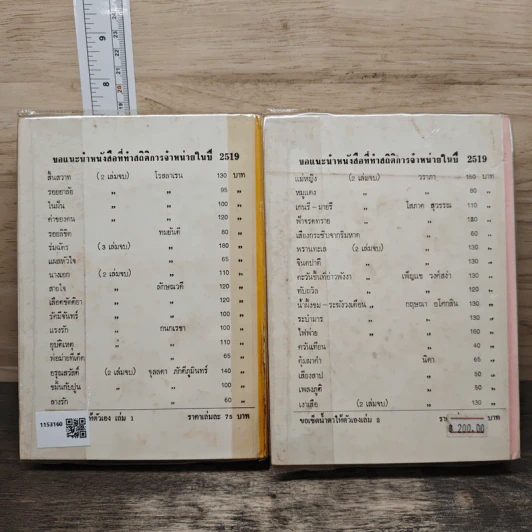 ขอแนะนำหนังสือที่ทำสถิติการจำหน่ายในปี 2519
สิ้นสวาท (2 เล่มจบ) โรสลาเรน 130 บาท
รอยอาลัย „ „ 95 „
ไฟฝัน „ „ 100 „
ค่าของคน „ „ 120 „
รอยลิขิต ทมยันตี 80 „
ร่มฉัตร (3 เล่มจบ) „ 180 „
แผลหัวใจ „ 65 „
นางเอก (2 เล่มจบ) „ 110 „
สายใจ „ ลักษณวดี 120 „
เลือดขัตติยา „ „ 120 „
รัศมีจันทร์ „ „ 100 „
แรงรัก „ กนกเรขา 110 „
อุบัติเหตุ „ „ 110 „
พ่อม่ายทีเด็ด „ 65 „
อรุณสวัสดิ์ (2 เล่มจบ) จุลลดา ภักดีภูมินทร์ 140 „
ขมิ้นกับปูน „ „ 100 „
ลางรัก „ 60 „
ให้ตัวเอง เล่ม 1 ราคาเล่มละ 75 บาท
1153160
ขอแนะนำหนังสือที่ทำสถิติการจำหน่ายในปี 2519
แม่หญิง (2 เล่มจบ) วราภา 150 บาท
หมูแดง „ „ 80 „
เกนรี - มายรี „ โสภาค สุวรรณ 110 „
ฟ้าจรดทราย „ „ 180 „
เสียงกระซิบจากริมหาด „ 60 „
พรานทะเล (2 เล่มจบ) „ 130 „
จินตปาตี „ „ 130 „
ตะวันขึ้นที่อ่าวพังงา „ เพ็ญแข วงศ์สง่า 130 „
ทับถวิล „ „ 120 „
น้ำผึ้งขม - ระฆังวงเดือน „ กฤษณา อโศกสิน 130 „
ระบำมาร „ „ 130 „
ไฟพ่าย „ „ 160 „
ควันเทียน „ 40 „
คุ้มผาคำ นิดา 65 „
เลื่องสาป „ 50 „
เพลงภูติ „ 50 „
เงาเสือ (2 เล่มจบ) „ 130 „
ขอเช็ดน้ำตาให้ตัวเองเล่ม 2 บาท
200.00
9
8
20